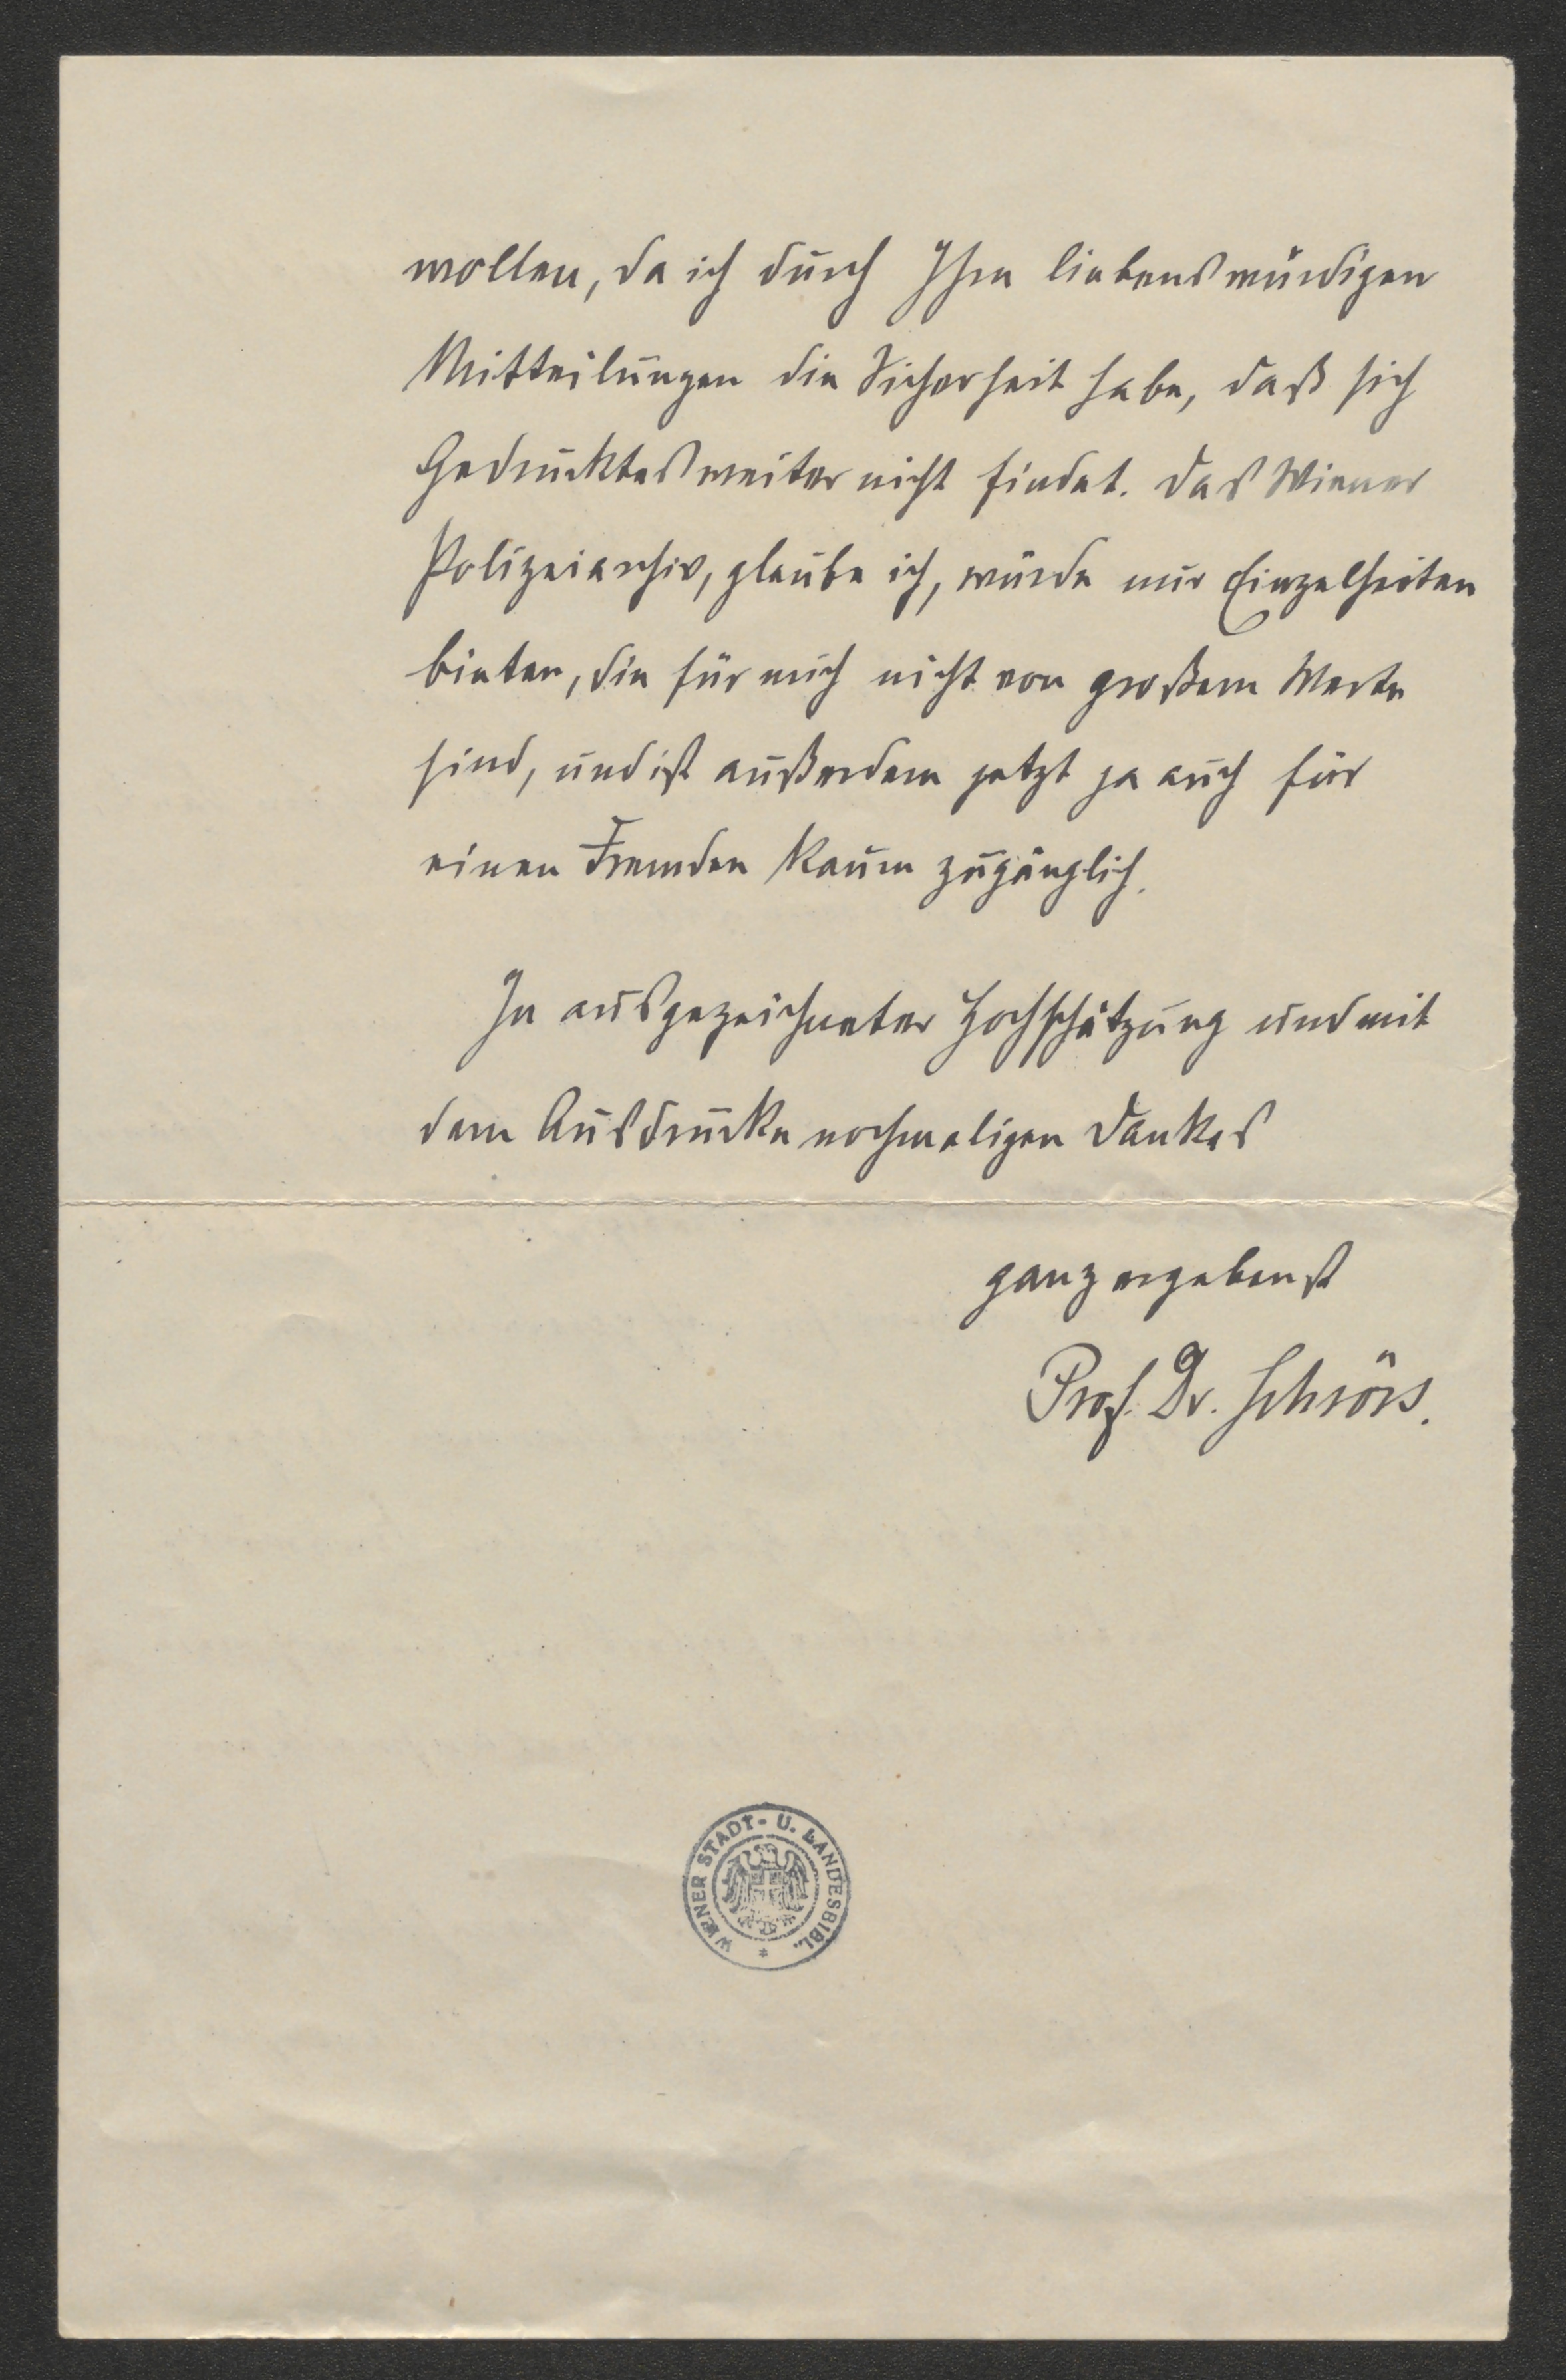 wollen, da ich durch Ihre liebenswürdigen
Mitteilungen die Sicherheit habe, daß sich
Gedrucktes weiter nicht findet. Das Wiener
Polizeiarchiv, glaube ich, würde nur Einzelheiten
bieten, die für mich nicht von großem Werte
sind, und ist außerdem jetzt ja auch für
einen Fremden kaum zugänglich.
In ausgezeichneter Hochschätzung und mit
dem Ausdrucke nochmaligen Dankes
ganz ergebenst
Prof. Dr. Schrörs.
WIENER STADT- U. LANDESBIBL. *